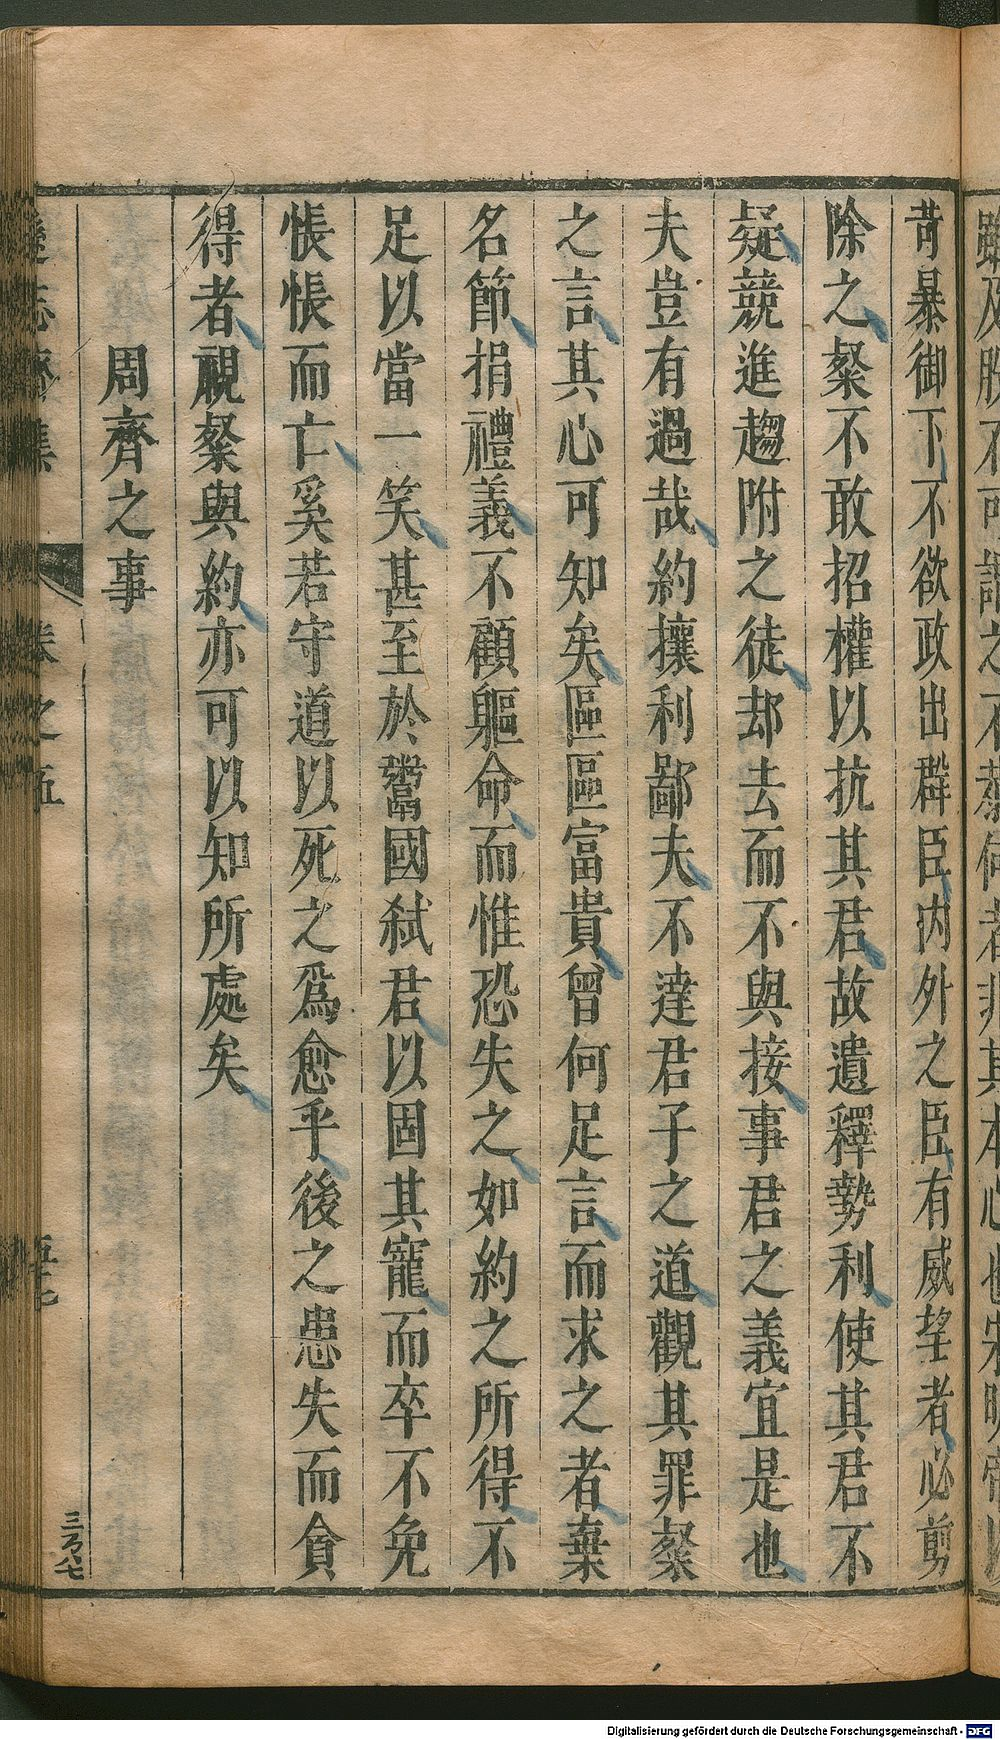 苛暴御下不欲政出群臣内外之臣有威望者必剪
除之粲不敢招權以抗其君故遺釋勢利使其君不
疑競進趨附之徒却去而不與接事君之義宜是也
夫豈有過哉約攘利鄙夫不達君子之道觀其罪粲
之言其心可知矣區區富貴曾何足言而求之者棄
名節捐禮義不顧軀命而惟恐失之如約之所得不
足以當一笑甚至於鬻國弑君以固其寵而卒不免
悵悵而亡奚若守道以死之爲愈乎後之患失而貪
得者視粲與約亦可以知所處矣
周齊之事
遜志齋集
卷之五
三百八七
Digitalisierung gefördert durch die Deutsche Forschungsgemeinschaft - DFG